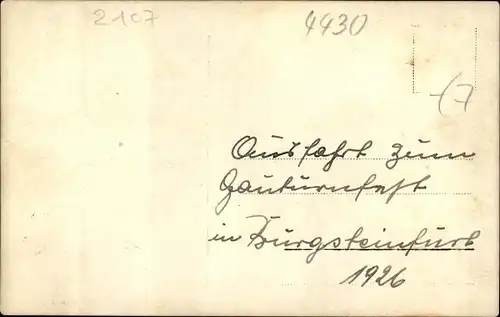 2107
4430
(7
Ausfahrt zum
Gauturnfest
in Burgsteinfurt
1926